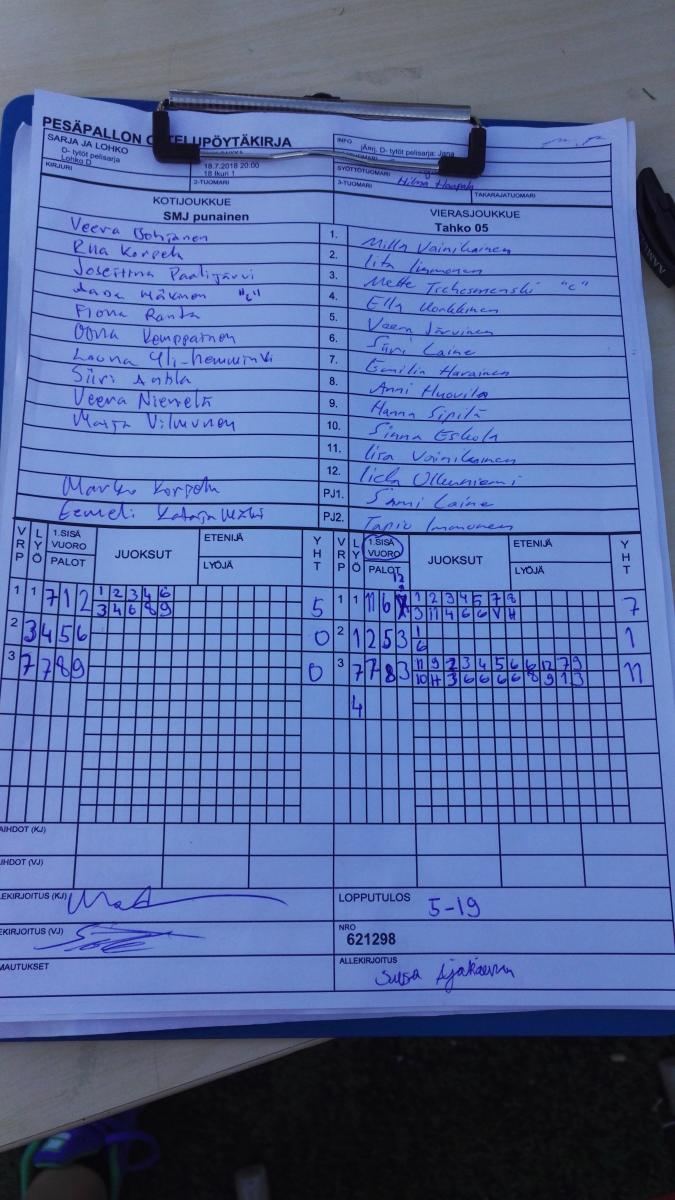 PESÄPALLON OTTELUPÖYTÄKIRJA
SARJA JA LOHKO
D- tytöt pelisarja
Lohko D
18.7.2018 20:00
18 Ikuri 1
INFO
jÄmj, D- tytöt pelisarja: Jana
KIRJURI
2-TUOMARI
SYÖTTÖTUOMARI
3-TUOMARI
Hilma Haapala
TAKARAJATUOMARI
KOTIJOUKKUE
SMJ punainen
VIERASJOUKKUE
Tahko 05
Veera 1. Milla Vainikainen
Riia Korpela 2. Iita Immonen
Josefiina Paalijärvi 3. Mette "c"
"c" 4. Ella
Fiona Ranta 5. Veera Järvinen
Oona Kemppainen 6. Siiri Laine
Launa Yli-hemminki 7. Emilia
Siiri Anttila 8. Anni Huovila
Veera Niemelä 9. Hanna Sipilä
Maija Vilmunen 10. Sinna Eskola
11. Iisa Vainikainen
12.
Marko Korpela PJ1. Sami Laine
Eemeli PJ2. Tapio Immonen
VRP LYÖ 1.SISÄ VUORO PALOT JUOKSUT ETENIJÄ LYÖJÄ YHT
VRP LYÖ 1.SISÄ VUORO PALOT JUOKSUT ETENIJÄ LYÖJÄ YHT
12
1 1 7 1 2 1 2 3 4 6 5 1 1 11 6 1 2 3 4 5 7 8 7
3 4 6 8 9 3 11 4 6 6 V H
2 3 4 5 6 0 2 1 2 5 3 1 1
6
3 7 7 8 9 0 3 7 7 8 3 11 9 2 3 4 5 6 6 12 7 9 11
10 H 3 6 6 6 6 8 9 1 3
4
AIHDOT (KJ)
IHDOT (VJ)
EKIRJOITUS (KJ)
LOPPUTULOS 5-19
EKIRJOITUS (VJ)
NRO
621298
MAUTUKSET
ALLEKIRJOITUS